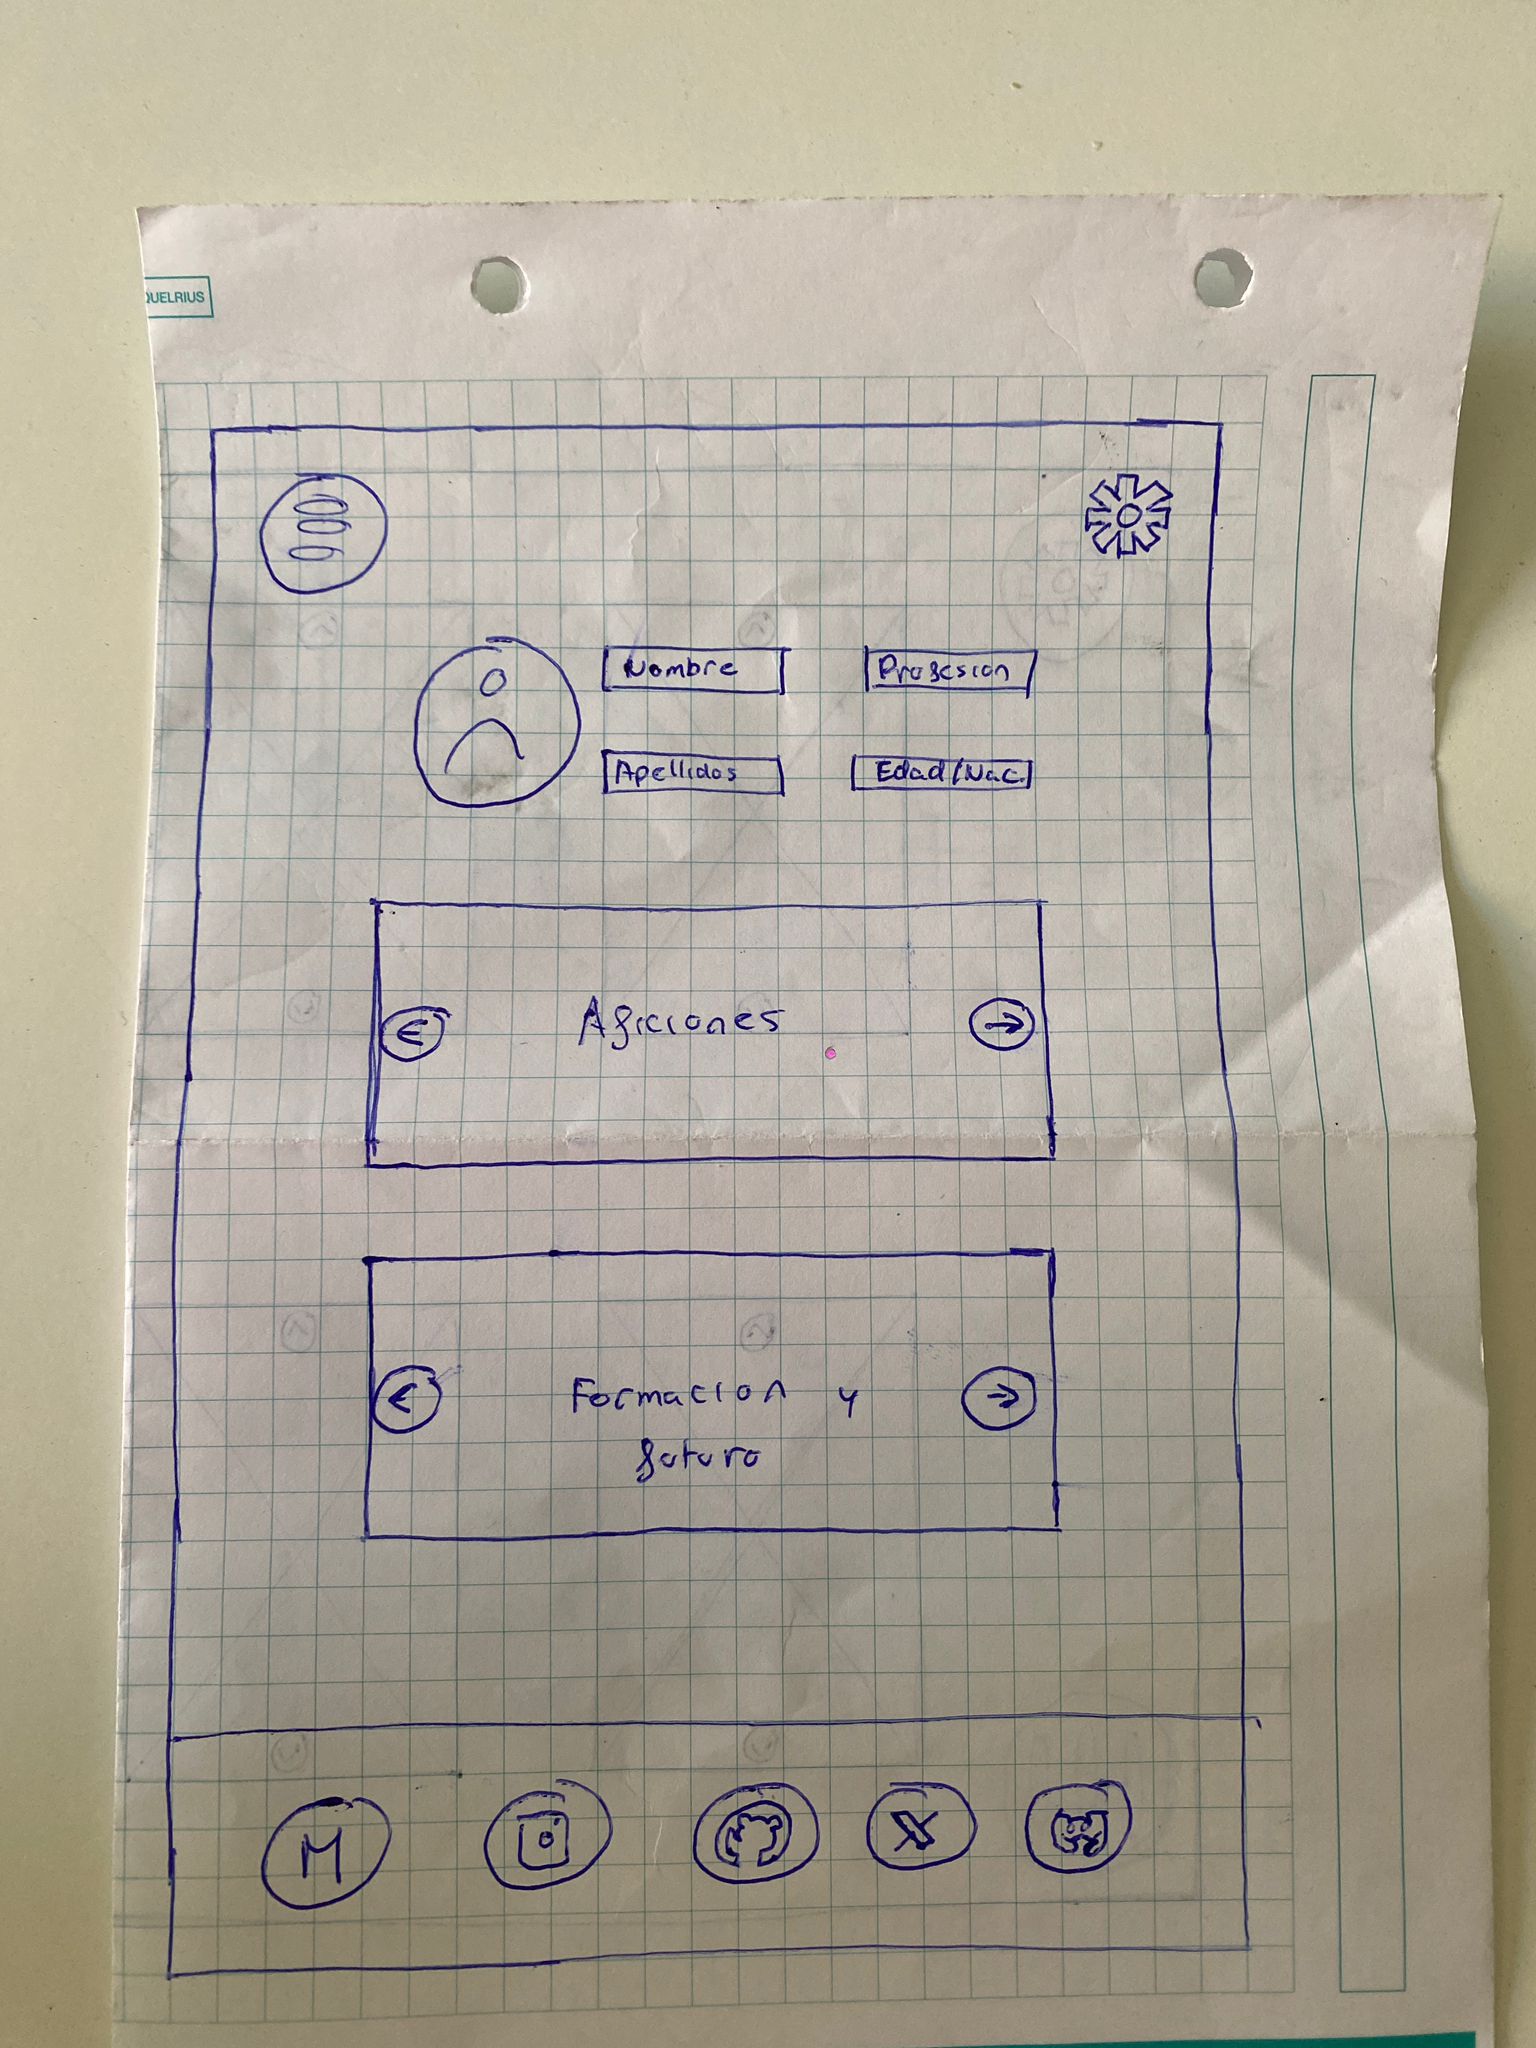 QUELRIUS
Nombre
Profesion
Apellidos
Edad/Nac.
Aficiones
Formacion y
futuro
M
X